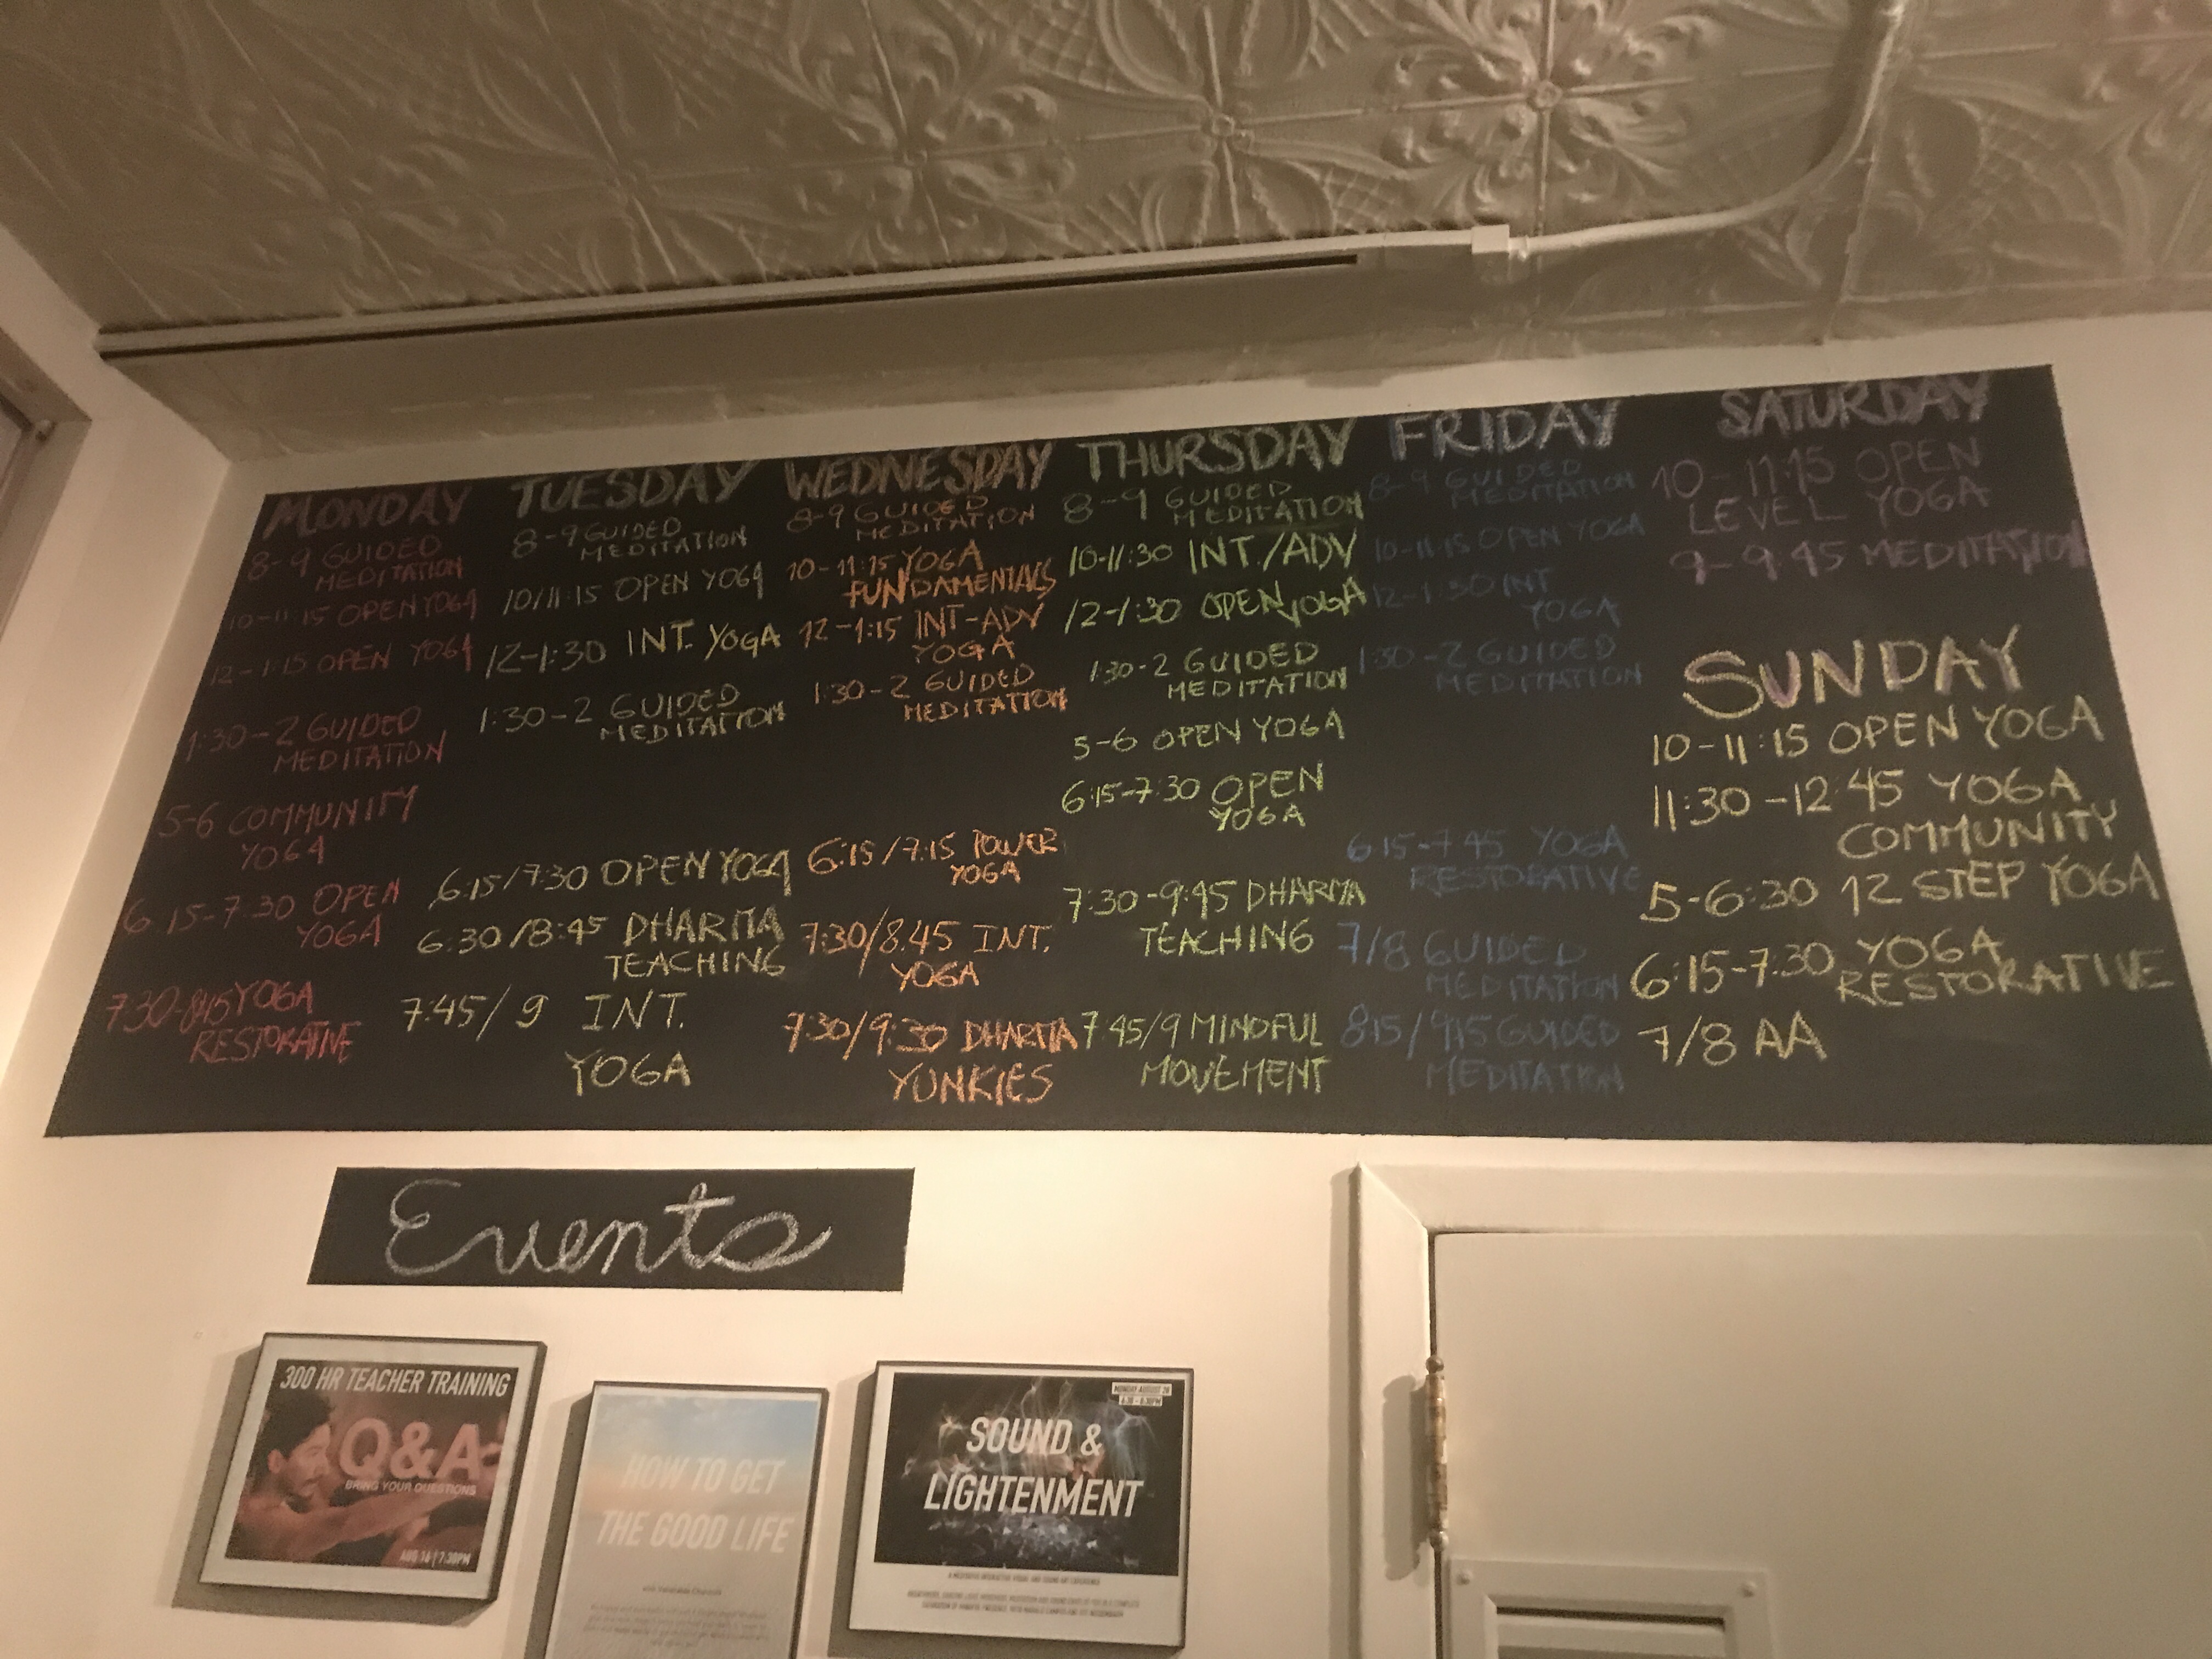 MONDAY
8-9 GUIDED
MEDITATION
10-11:15 OPEN YOGA
12-1:15 OPEN YOGA
1:30-2 GUIDED
MEDITATION
5-6 COMMUNITY
YOGA
6:15-7:30 OPEN
YOGA
7:30-845 YOGA
RESTORATIVE
TUESDAY
8-9 GUIDED
MEDITATION
10/11:15 OPEN YOGA
12-1:30 INT. YOGA
1:30-2 GUIDED
MEDITATION
6:15/7:30 OPEN YOGA
6:30/8:45 DHARMA
TEACHING
7:45/9 INT.
YOGA
WEDNESDAY
8-9 GUIDED
MEDITATION
10-11:15 YOGA
FUNDAMENTALS
12-1:15 INT-ADV
YOGA
1:30-2 GUIDED
MEDITATION
6:15/7:15 POWER
YOGA
7:30/8.45 INT.
YOGA
7:30/9:30 DHARMA
YUNKIES
THURSDAY
8-9 GUIDED
MEDITATION
10-11:30 INT./ADV
12-1:30 OPEN YOGA
1:30-2 GUIDED
MEDITATION
5-6 OPEN YOGA
6:15-7:30 OPEN
YOGA
7:30-9:45 DHARMA
TEACHING
7:45/9 MINDFUL
MOVEMENT
FRIDAY
8-9 GUIDED
MEDITATION
10-11:15 OPEN YOGA
12-1:30 INT
YOGA
1:30-2 GUIDED
MEDITATION
6:15-7:45 YOGA
RESTORATIVE
7/8 GUIDED
MEDITATION
8:15/9:15 GUIDED
MEDITATION
SATURDAY
10-11:15 OPEN
LEVEL YOGA
9-9:45 MEDITATION
SUNDAY
10-11:15 OPEN YOGA
11:30-12:45 YOGA
COMMUNITY
5-6:30 12 STEP YOGA
6:15-7:30 YOGA
RESTORATIVE
7/8 AA
Events
300 HR TEACHER TRAINING
Q&A
BRING YOUR QUESTIONS
AUG 16 | 7:30PM
HOW TO GET
THE GOOD LIFE
MONDAY AUGUST 28
6:30 - 8:30PM
SOUND &
LIGHTENMENT